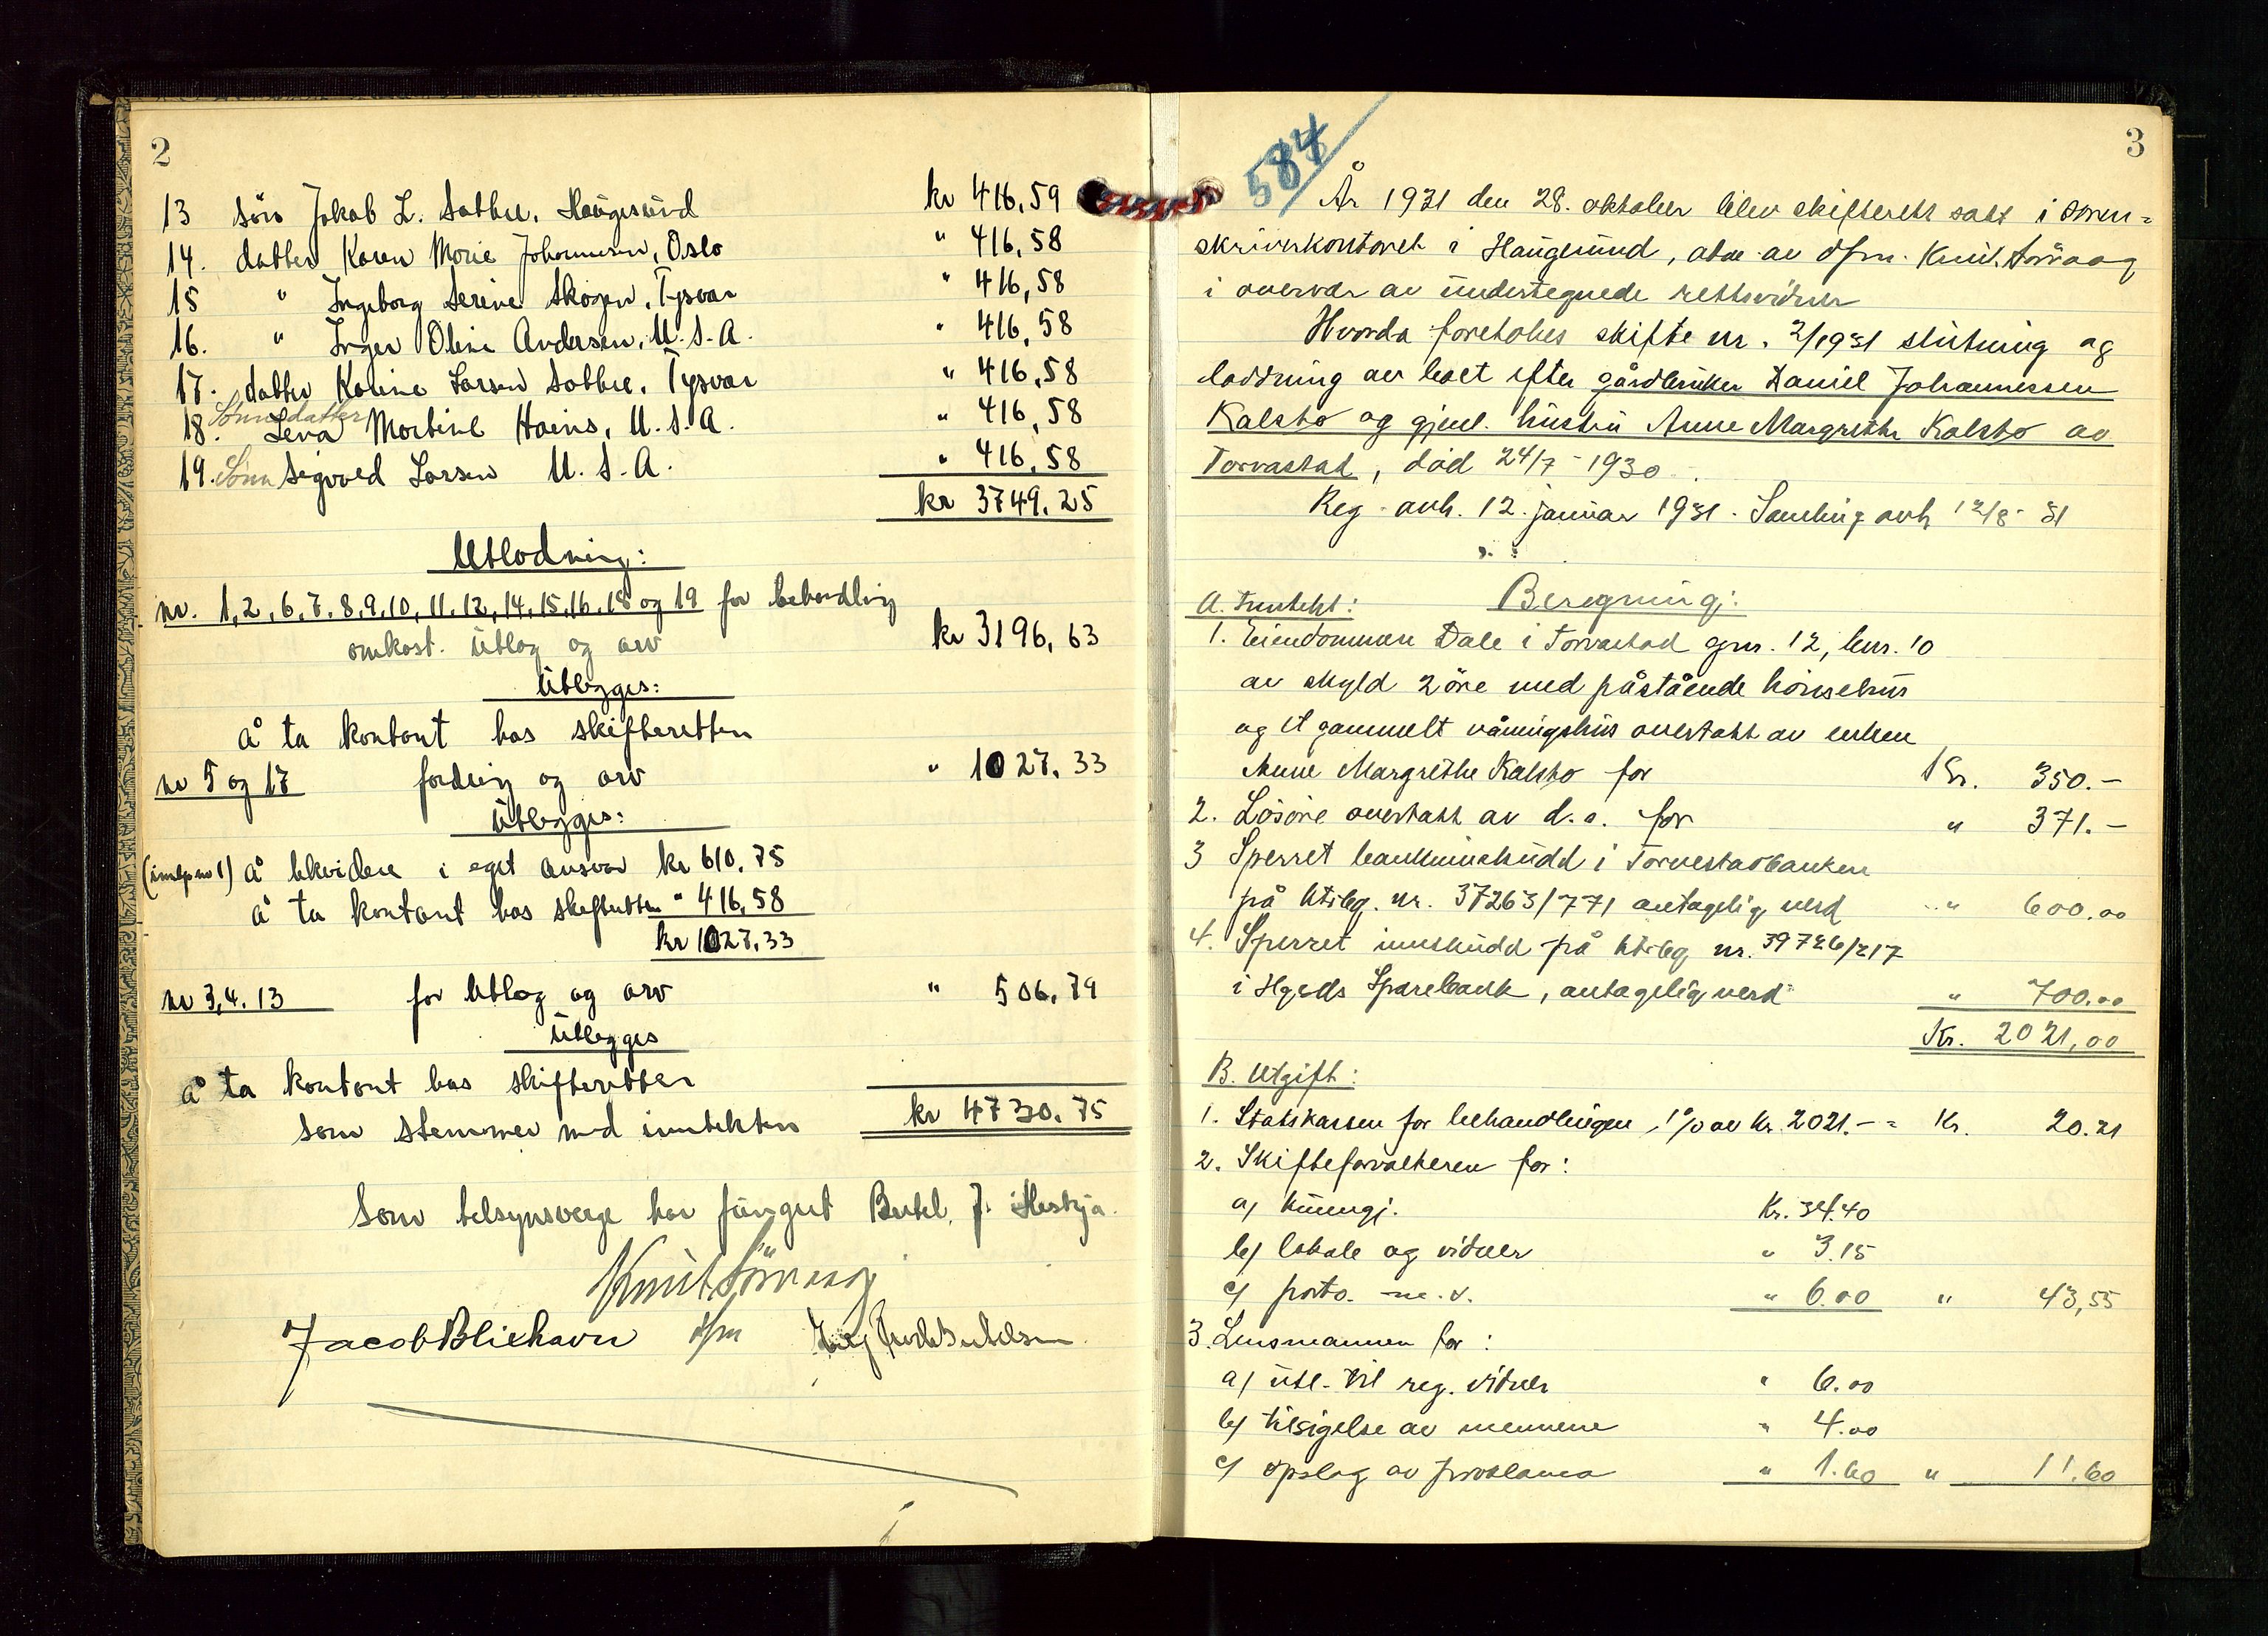 2
13 sön Jakob L. Sabbe, Haugesund kr 416,59
14. datter Karen Marie Johannesen, Oslo " 416,58
15 " Ingeborg Serine Skogen, Tysvær " 416,58
16. " Inger Oline Andersen, U.S.A. " 416,58
17. datter Karine Larsen Sabbe, Tysvær " 416,58
18. Sønnedatter Lena Martine Hains, U.S.A. " 416,58
19. Sønn Sigvald Larsen U.S.A. " 416,58
kr 3749,25
Utlodning:
nr. 1,2,6,7,8,9,10,11,12,14,15,16,18 og 19 for behandling
omkost. utlæg og arv kr 3196,63
Utlegges:
å ta kontant hos skifteretten
nr 5 og 17 fordring og arv " 1027.33
Utlegges:
å likvidere i eget ansvar kr 610,75
å ta kontant hos skifteretten " 416,58
kr 1027,33
nr 3,4,13 for utlæg og arv " 506,79
Utlegges
å ta kontant hos skifteretten
som stemmer med inntekten kr 4730.75
Som tilsynsverge har fungert Bertel J.
Knut Sörvaag
Jacob Bliehavn dfm
3
584
År 1931 den 28. oktober blev skifterett satt i soren-
skriverkontoret i Haugesund, adm. av dfm. Knut Sörvaag
i overvær av undertegnede rettsvidner
Hvorda foretokes skifte nr. 2/1931 slutning og
loddning av boet efter gårdbruker Daniel Johannessen
Kalstø og gjenl. hustru Anne Margrethe Kalstø av
Torvastad, død 24/7-1930.
Reg. avh. 12. januar 1931. Samling avh 12/8-31
Beregning:
A. Inntekt:
1. Eiendommen Dale i Torvastad gnr. 12, bnr. 10
av skyld 2 öre med påstående hönsehus
og et gammelt våningshus overtatt av enken
Anne Margrethe Kalstø for Kr. 350.-
2. Lösöre overtatt av d.s. for " 371.-
3 Sperret bankinnskudd i Torvestadbanken
på ktrbg. nr. 37263/771 antagelig verd " 600.00
4. Sperret innskudd på ktrbg nr. 39726/217
i Hgsds Sparebank, antagelig verd " 700.00
Kr. 2021,00
B. Utgift:
1. Statskassen for behandlingen, 1% av Kr. 2021.- = Kr. 20.21
2. Skifteforvalteren for:
a) kunngj. Kr. 34.40
b) lokale og vidner " 3.15
c) porto m.v. " 6.00 " 43,55
3. Lensmannen for:
a) utl. til reg. vidner " 6.00
b) tilsigelse av mennene " 4.00
c) opslag av proklama " 1.60 " 11.60